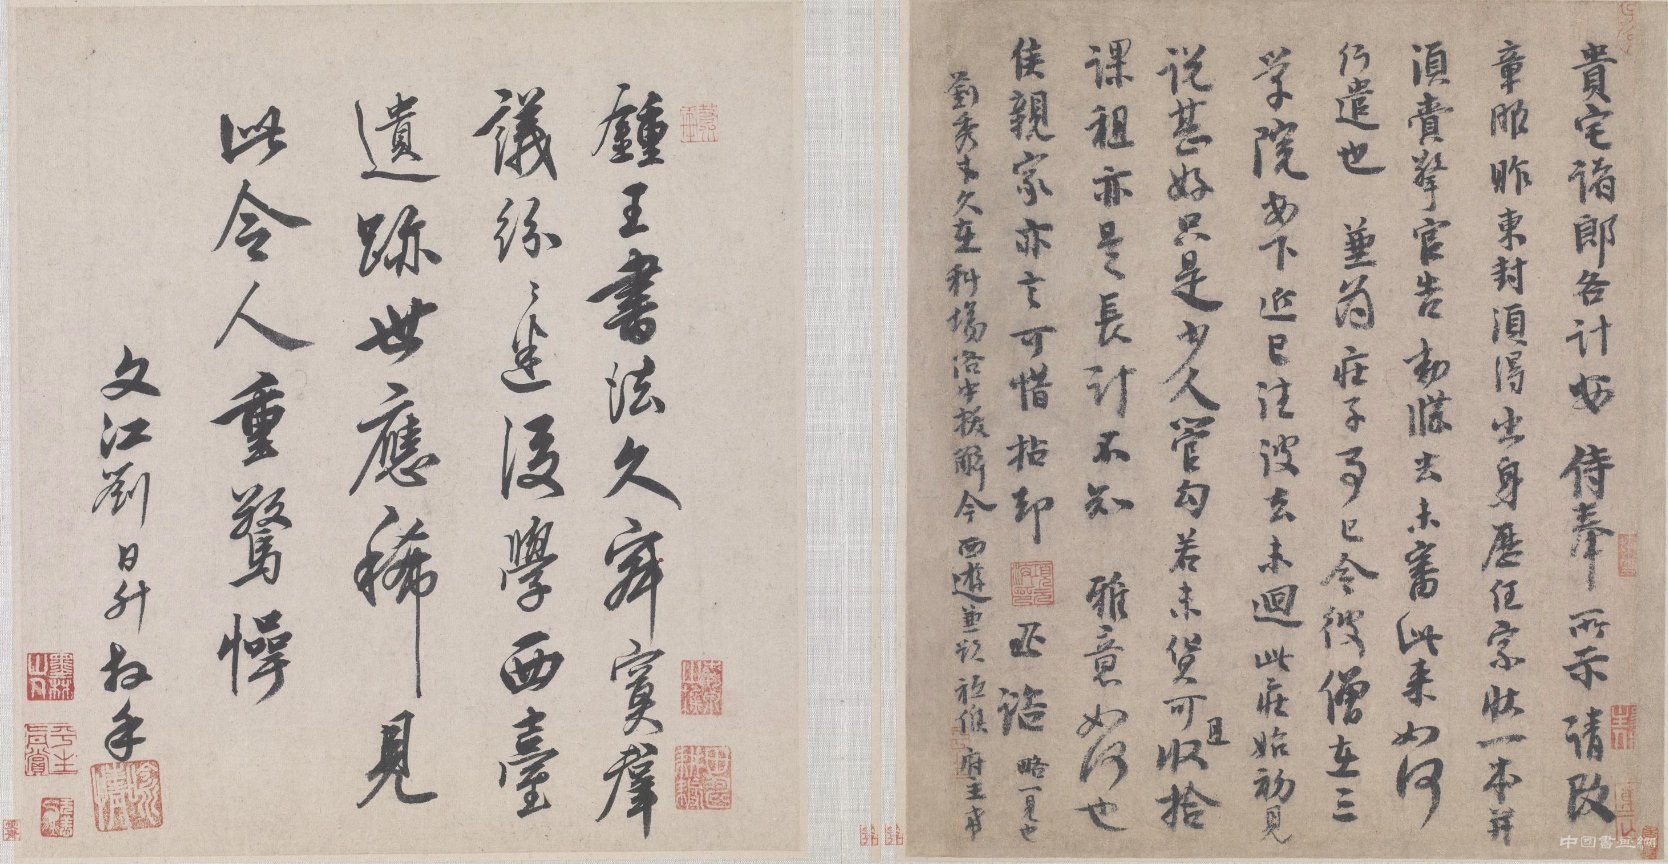 貴宅諸郎各計安侍奉所示請改
章服昨東封須得出身歷任家狀一本並
須賫擎官告勑牒去未審此來如何
行遣也 並為庄子事已令彼僧在三
學院安下近已往彼去未迴此庄始初見
説甚好只是少人管勾若未貨可且收拾
課租亦是長計不知 雅意如何也
侯親家亦言可惜拈却 略一見也
劉秀才久在科場洛中拔解今西遊兼欲祗候府主
鍾王書法久寂寞羣
議紛〻迷後學西臺
遺跡世應稀見
此令人重驚愕
文江劉日升拜手
中國書畫網